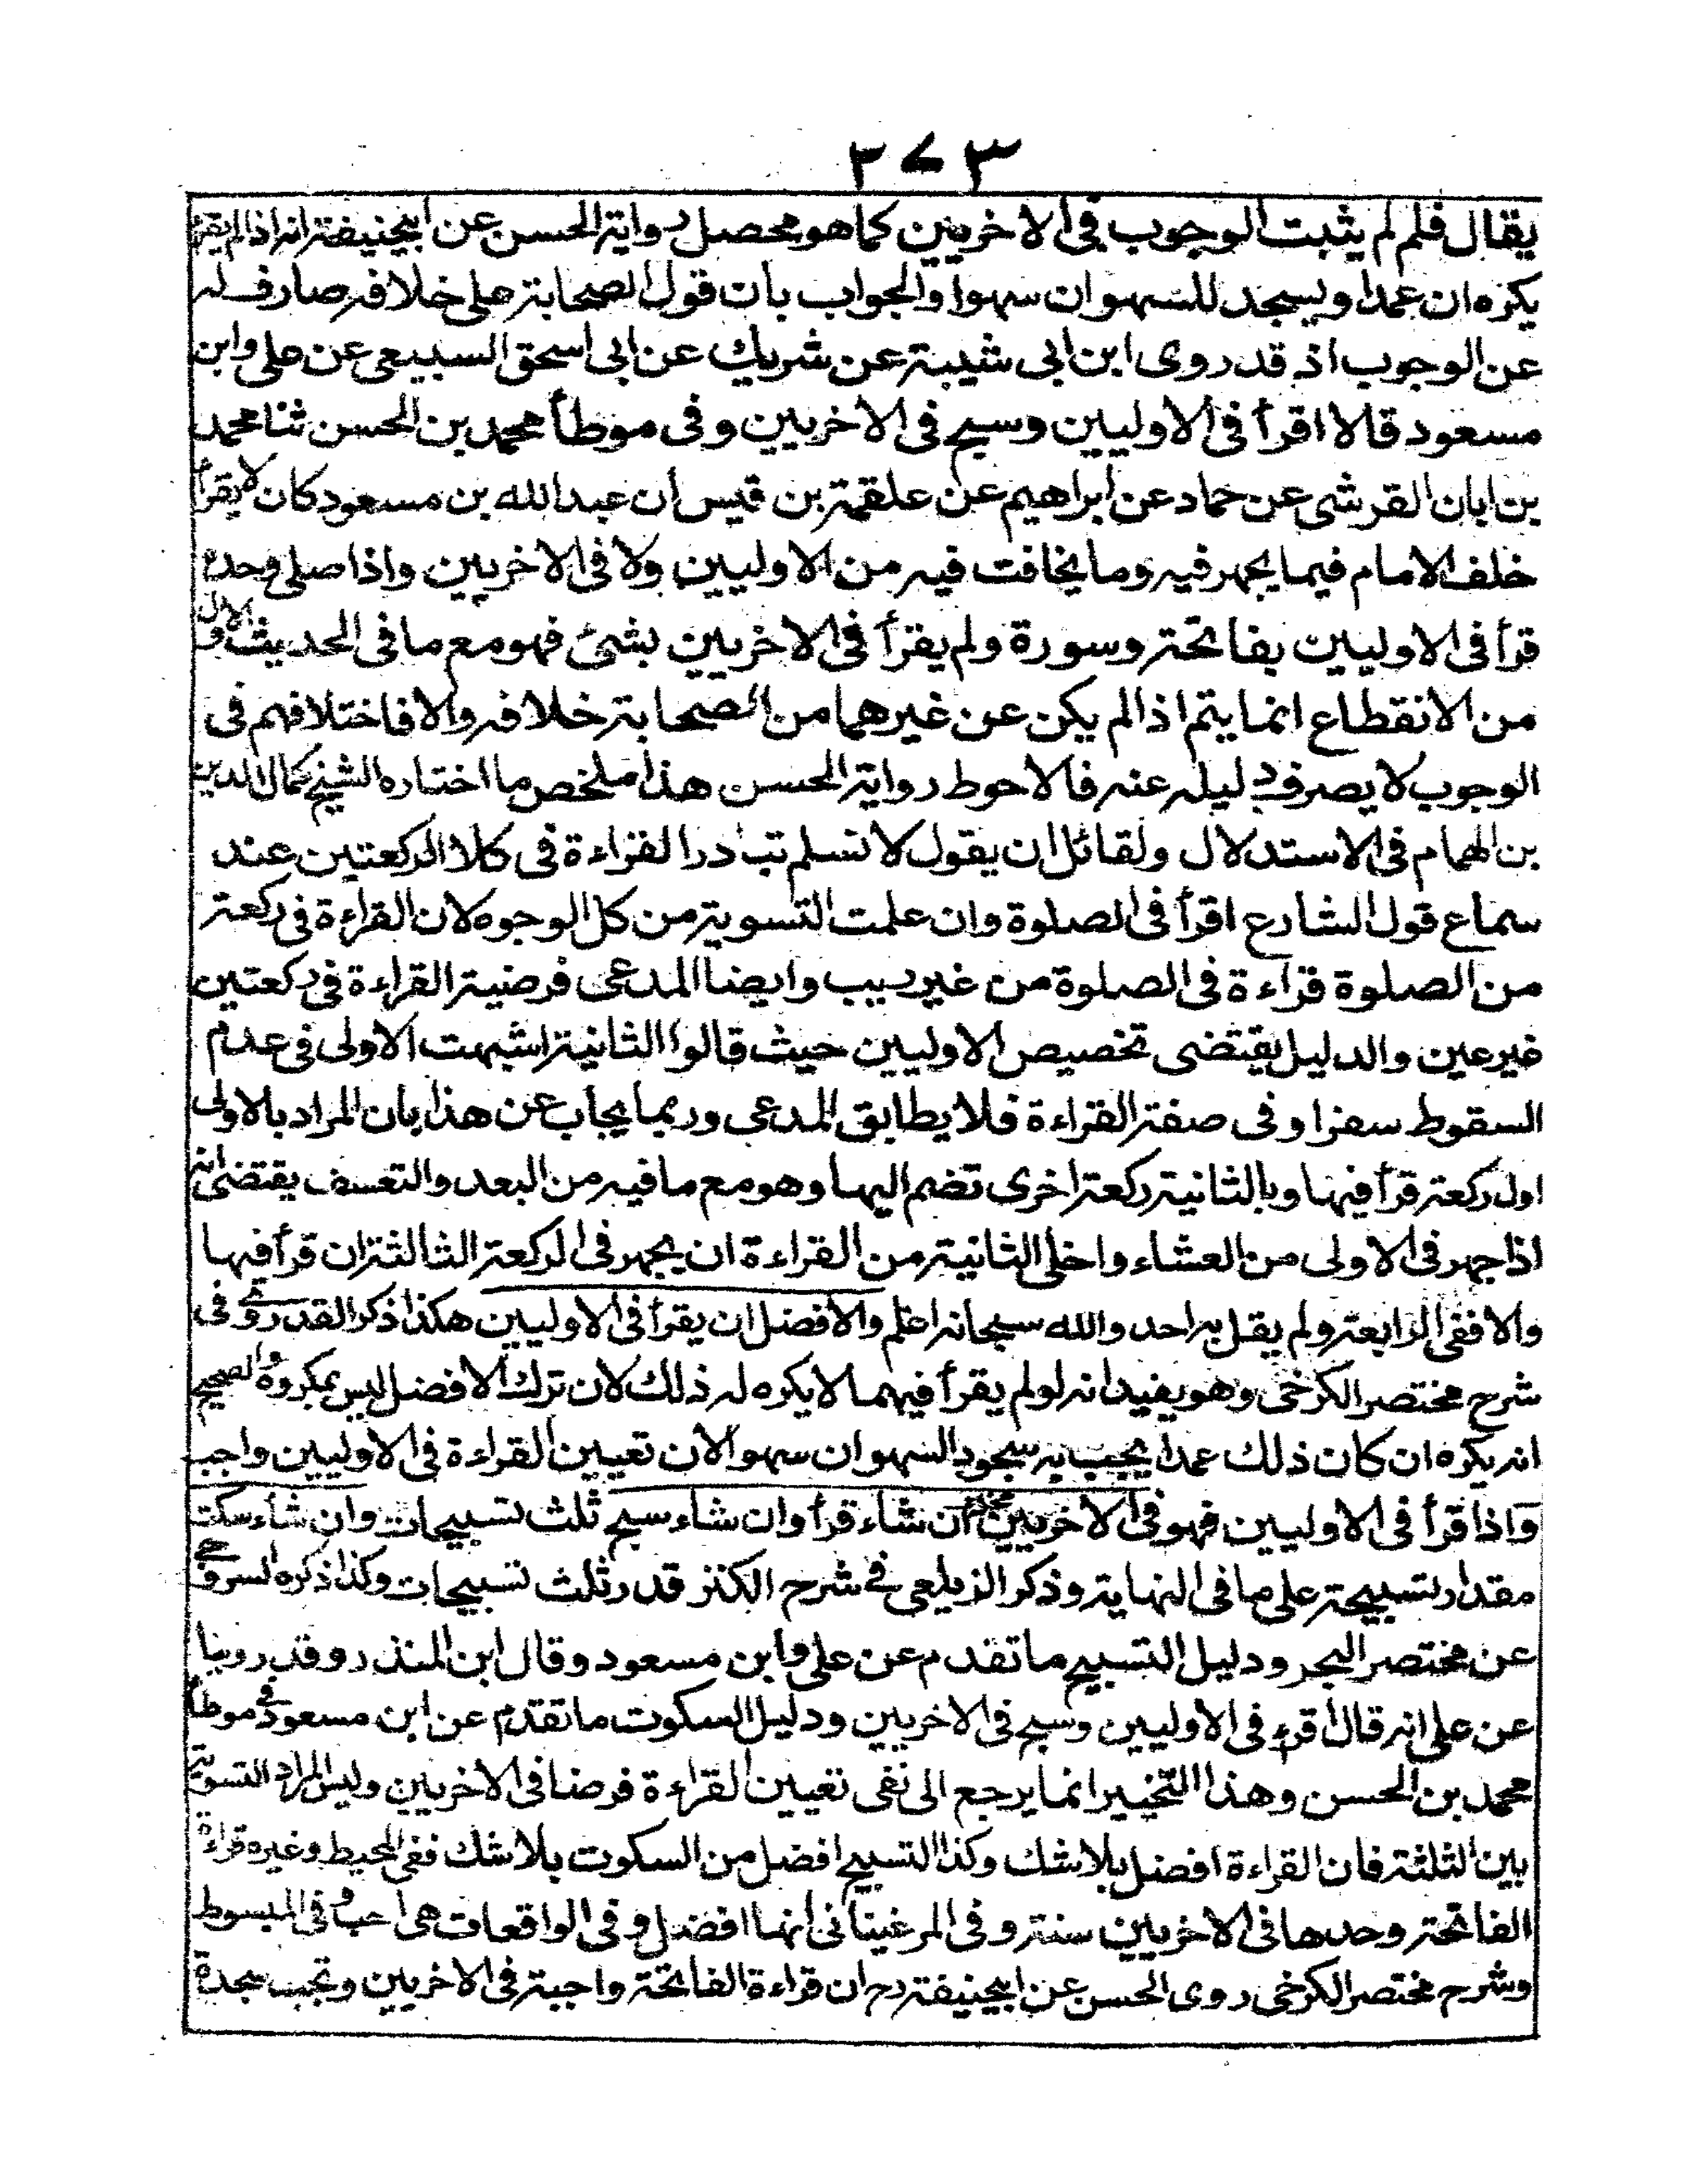 ٣٧٣
يقال فلم لم يثبت الوجوب فى الاخريين كما هو محصل رواية الحسن عن ابيحنيفة انه اذا لم يقرأ
يكره ان عمدا ويسجد للسهو ان سهوا والجواب بان قول الصحابة على خلافه صارف له
عن الوجوب اذ قد روى ابن ابى شيبة عن شريك عن ابى اسحق السبيعى عن على وابن
مسعود قالا اقرأ فى الاوليين وسبح فى الاخريين وفى موطأ محمد بن الحسن ثنا محمد
بن ابان القرشى عن حماد عن ابراهيم عن علقمة بن قيس ان عبد الله بن مسعود كان لا يقرأ
خلف الامام فيما يجهر فيه وما يخافت فيه من الاوليين ولا فى الاخريين واذا صلى وحده
قرأ فى الاوليين بفاتحة وسورة ولم يقرأ فى الاخريين بشئ فهو مع ما فى الحديث الاول
من الانقطاع انما يتم اذا لم يكن عن غيرهما من الصحابة خلافه والا فاختلافهم فى
الوجوب لا يصرف دليله عنه فالاحوط رواية الحسن هذا ملخص ما اختاره الشيخ كمال الدين
بن الهمام فى الاستدلال ولقائل ان يقول لا نسلم تبادر القراءة فى كلا الركعتين عند
سماع قول الشارع اقرأ فى الصلوة وان علمت التسوية من كل الوجوه لان القراءة فى ركعة
من الصلوة قراءة فى الصلوة من غير ريب وايضا المدعى فرضية القراءة فى ركعتين
غير عين والدليل يقتضى تخصيص الاوليين حيث قالوا الثانية اشبهت الاولى فى عدم
السقوط سفرا وفى صفة القراءة فلا يطابق المدعى وربما يجاب عن هذا بان المراد بالاولى
اول ركعة قرأ فيها وبالثانية ركعة اخرى تضم اليها وهو مع ما فيه من البعد والتعسف يقتضى انه
اذا جهر فى الاولى من العشاء واخلى الثانية من القراءة ان يجهر فى الركعة الثالثة ان قرأ فيها
والا ففى الرابعة ولم يقل به احد والله سبحانه اعلم والافضل ان يقرأ فى الاوليين هكذا ذكر القدورى فى
شرح مختصر الكرخى وهو يفيد انه لو لم يقرأ فيهما لا يكره له ذلك لان ترك الافضل ليس بمكروه والصحيح
انه يكره ان كان ذلك عمدا يجب به سجود السهو ان سهوا لان تعيين القراءة فى الاوليين واجب
واذا قرأ فى الاوليين فهو فى الاخريين مخير ان شاء قرأ وان شاء سبح ثلث تسبيحات وان شاء سكت
مقدار تسبيحة على ما فى النهاية وذكر الزيلعى فى شرح الكنز قدر ثلث تسبيحات وكذا ذكره السروجى
عن مختصر البحر ودليل التسبيح ما تقدم عن على وابن مسعود وقال ابن المنذر وقد روينا
عن على انه قال اقرء فى الاوليين وسبح فى الاخريين ودليل السكوت ما تقدم عن ابن مسعود فى موطأ
محمد بن الحسن وهذا التخيير انما يرجع الى نفى تعيين القراءة فرضا فى الاخريين وليس المراد التسوية
بين الثلثة فان القراءة افضل بلا شك وكذا التسبيح افضل من السكوت بلا شك ففى المحيط وغيره قراءة
الفاتحة وحدها فى الاخريين سنة وفى المرغينانى انها افضل وفى الواقعات هى احب وفى المبسوط
وشرح مختصر الكرخى روى الحسن عن ابيحنيفة رح ان قراءة الفاتحة واجبة فى الاخريين وتجب سجدة